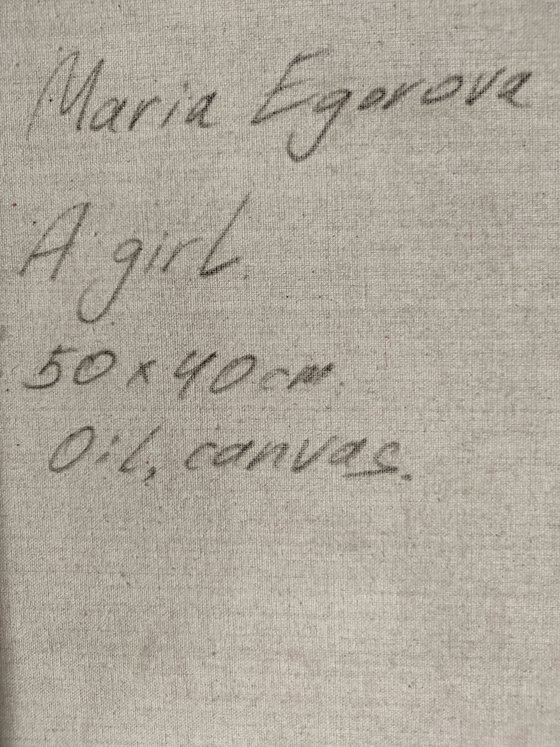 Maria Egorova
A girl.
50 x 40 cm.
Oil, canvas.